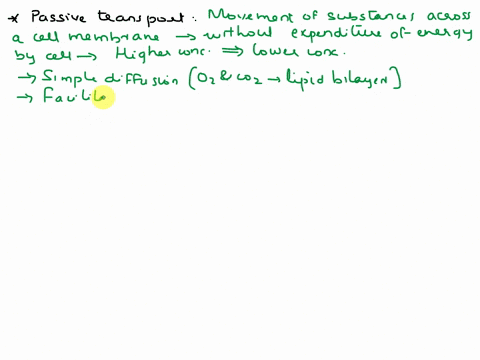 * Passive transport: Movement of substances across
a cell membrane → without expenditure of energy
by cell → Higher conc. ⇒ lower conc.
→ Simple diffusion (O2 & CO2 → lipid bilayer)
→ Facilita